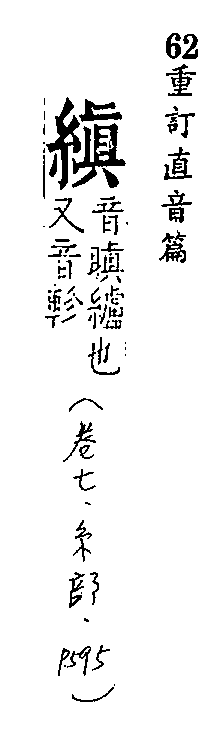 62重訂直音篇
縝
音瞋纑也
又音軫
（卷七、糸部、P595）